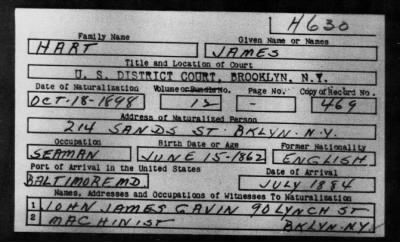 H630
Family Name Given Name or Names
HART JAMES
Title and Location of Court
U. S. DISTRICT COURT, BROOKLYN, N.Y.
Date of Naturalization Volume or Bundle No. Page No. Copy of Record No.
OCT-18-1898 12 - 469
Address of Naturalized Person
214 SANDS ST. BKLYN. N.Y.
Occupation Birth Date or Age Former Nationality
SEAMAN JUNE 15-1862 ENGLISH
Port of Arrival in the United States Date of Arrival
BALTIMORE MD. JULY 1884
Names, Addresses and Occupations of Witnesses To Naturalization
1 JOHN JAMES GAVIN 90 LYNCH ST
2 MACHINIST BKLYN-N.Y.